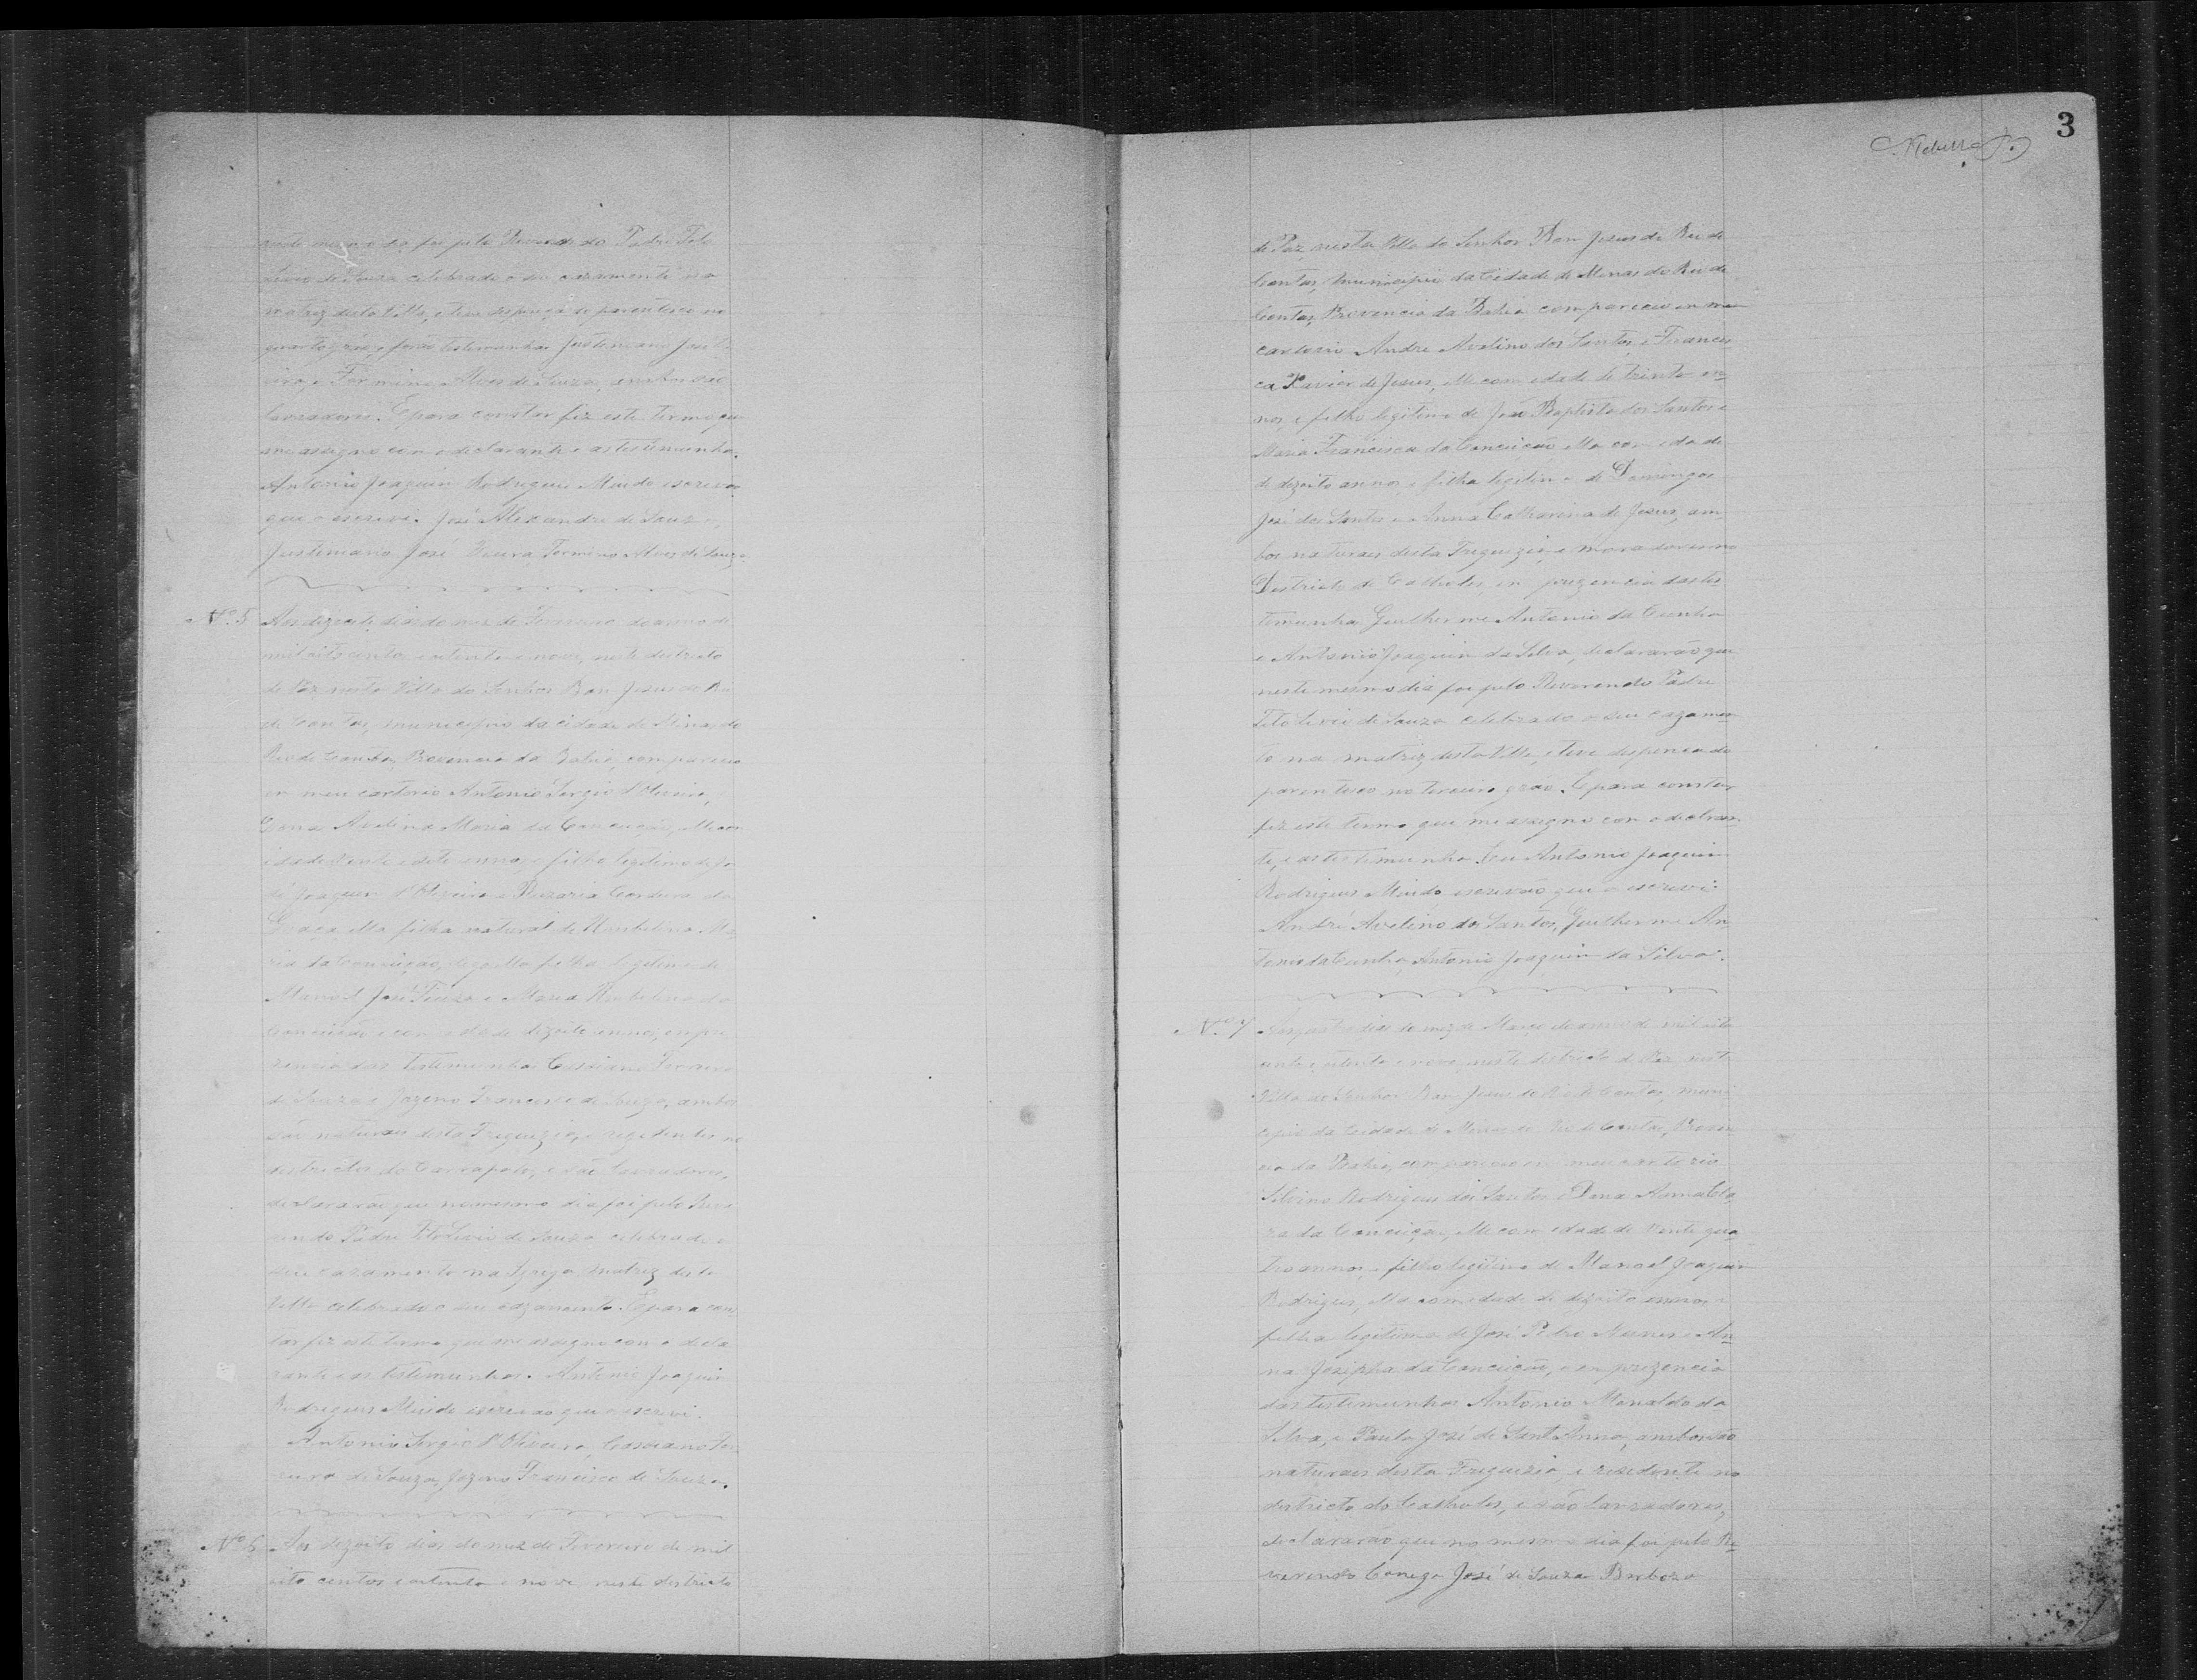 neste mesmo dia foi pelo Reverendo Padre Tito
Livio de Souza celebrado o seu cazamento na
matriz desta Villa, e teve dispença de parentesco no
quarto gráo, forão testemunhas Justiniano José
e Firmino Alves de Souza, ambos são
lavradores. E para constar fiz este termo que
me assigno com o declarante e as testemunhas.
Antonio Joaquim Rodrigues Maido escrivão
que o escrevi. José Alexandre de Souza
Justiniano José Firmino Alves de Souza.
Nº 5 Aos dezesete dias do mez de Fevereiro do anno de
mil oito centos e oitenta e nove, neste districto
de Paz nesta Villa do Senhor Bom Jesus do Rio
de Contas, municipio da cidade de Minas do
Rio de Contas, Provincia da Bahia, compareceo
em meu cartorio Antonio Sergio d'Oliveira,
Dona Avelina Maria da Conceição, elle com
idade vente e sete annos, e filho legitimo de Jo
sé Joaquim d'Oliveira e Rozaria Cardoza da
Graça ella filha natural de Umbelina Ma
ria da Conceição, digo ella filha legitima de
Manoel José e Maria Umbelina da
Conceição e com edade de dezoito annos, em pre
zencia das testemunhas Cassiano Ferreira
de Souza e Jozeno Francisco de Souza, ambos
são naturaes desta Freguezia, e rezidentes no
districtos do Carrapato, e são lavradores,
declararão que no mesmo dia foi pelo Reve
rendo Padre Tito Livio de Souza celebrado o
seu cazamento na Igreja matriz desta
Villa celebrado o seu cazamento. E para cons
tar fiz este termo que me assigno com o decla
rante e as testemunhas. Antonio Joaquim
Rodrigues Maido escrivão que o escrevi.
Antonio Sergio d'Oliveira, Cassiano Fer
reira de Souza, Jozeno Francisco de Souza.
Nº 6 Aos dezoito dias do mez de Fevereiro de mil
oito centos e oitenta e nove neste districto
3
de Paz nesta Villa do Senhor Bom Jesus do Rio de
Contas, Municipio da Cidade de Minas do Rio de
Contas, Provincia da Bahia compareceo em meu
cartorio Andre Avelino dos Santos, e Francis
ca Xavier de Jesus, elle com edade de trinta an
nos, e filho legitimo de José Baptista dos Santos e
Maria Francisca da Conceicão ella com edade
de dezoito annos, e filha legitima de Domingos
José dos Santos e Anna Catharina de Jesus, am
bos naturaes desta Freguezia, e moradores no
Districto de Catholes, em prezencia das tes
temunha Guilherme Antonio da Cunha
e Antonio Joaquim da Silva, declararão que
neste mesmo dia foi pelo Reverendo Padre
Tito Livio de Souza celebrado o seu cazamen
to na matriz desta Villa, e teve dispença de
parentesco no terceiro grao. E para constar
fiz este termo que me assigno com o declaran
te, e as testemunha. Eu Antonio Joaquim
Rodrigues Maido escrivão que o escrevi.
André Avelino dos Santos, Guilherme An
tonio da Cunha, Antonio Joaquim da Silva.
Nº 7 Aos quatro dias do mez de Março do anno de mil oito
cento e oitenta e nove, neste districto de Paz nesta
Villa do Senhor Bom Jesus do Rio de Contas, muni
cipio da Cidade de Minas do Rio de Contas, Provin
cia da Bahia, compareceo em meu cartorio
Silvino Rodrigues dos Santos e Dona Anna Cla
ra da Conceição, elle com edade de Vente qua
tro annos, filho legitimo de Manoel Joaquim
Rodrigues, ella com edade de dezoito annos
filha legitima de José Pedro Nunes e An
na Josepha da Conceição, e em prezencia
das testemunhas Antonio Monaldo da
Silva, e Paulo José de Sant'Anna, ambos são
naturaes desta Freguezia, e rezidente no
districto do Catholes, e são lavradores,
declararão que no mesmo dia foi pelo Re
verendo Conego José de Souza Barboza